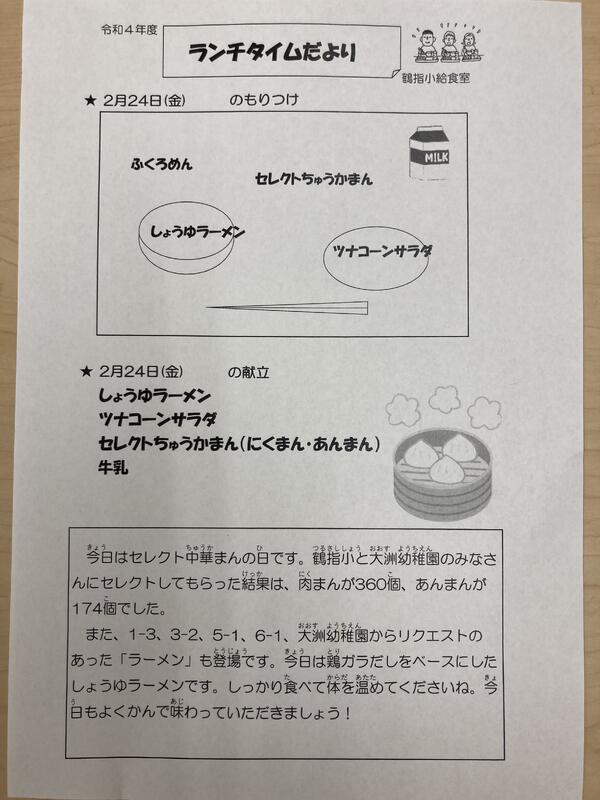 令和4年度
ランチタイムだより
鶴指小給食室
★ 2月24日(金) のもりつけ
ふくろめん
セレクトちゅうかまん
MILK
しょうゆラーメン
ツナコーンサラダ
★ 2月24日(金) の献立
しょうゆラーメン
ツナコーンサラダ
セレクトちゅうかまん(にくまん・あんまん)
牛乳
きょう ちゅうか ひ つるさししょう おおす ようちえん
今日はセレクト中華まんの日です。鶴指小と大洲幼稚園のみなさ
けっか にく こ
んにセレクトしてもらった結果は、肉まんが360個、あんまんが
こ
174個でした。
おおす ようちえん
また、1-3、3-2、5-1、6-1、大洲幼稚園からリクエストの
とうじょう きょう とり
あった「ラーメン」も登場です。今日は鶏ガラだしをベースにした
た からだ あたた きょ
しょうゆラーメンです。しっかり食べて体を温めてくださいね。今
う あじ
日もよくかんで味わっていただきましょう!